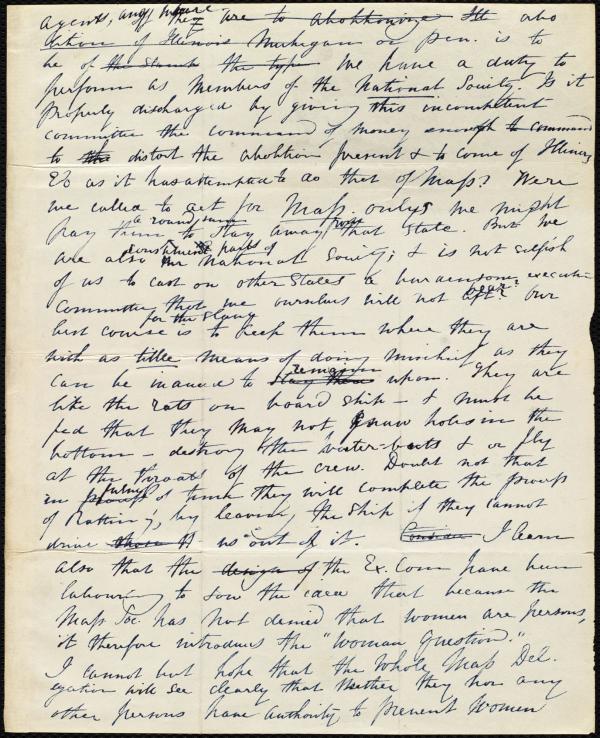 agents, and hence they are to abolitionize Ill abo
lition of Illinois Michigan or Pen. is to
be of the stamp the type We have a duty to
perform as Members of the National Society. Is it
properly discharged by giving this incompetent
committee the command of money enough to command
to the distort the abolition present & to come of Illinois
Etc as it has attempted to do that of Mass? Were
we called to act for Mass. only, we might
pay them a round sum to stay away from that State. But we
are also constituent parts of the National Society; & is not selfish
of us to cast on other States a burdensome executive
Committee that we ourselves will not bear? Our
best course for the slave is to keep them where they are
with as little means of doing mischief as they
can be induced to stay there remain upon. They are
like the rats on board ship – & must be
fed that they may not gnaw holes in the
bottom – destroy the water-butts & or fly
at the throats of the crew. Doubt not that
in fulness of time they will complete the proofs
of Ratting, by leaving the Ship if they cannot
drive those us out of it. Consider I learn
also that the design of the Ex. Com have been
labouring to sow the idea that because the
Mass Soc. has not denied that women are persons,
it therefore introduces the "Woman Question."
I cannot but hope that the whole Mass Del.
egation will see clearly that neither they nor any
other persons have authority to prevent Women